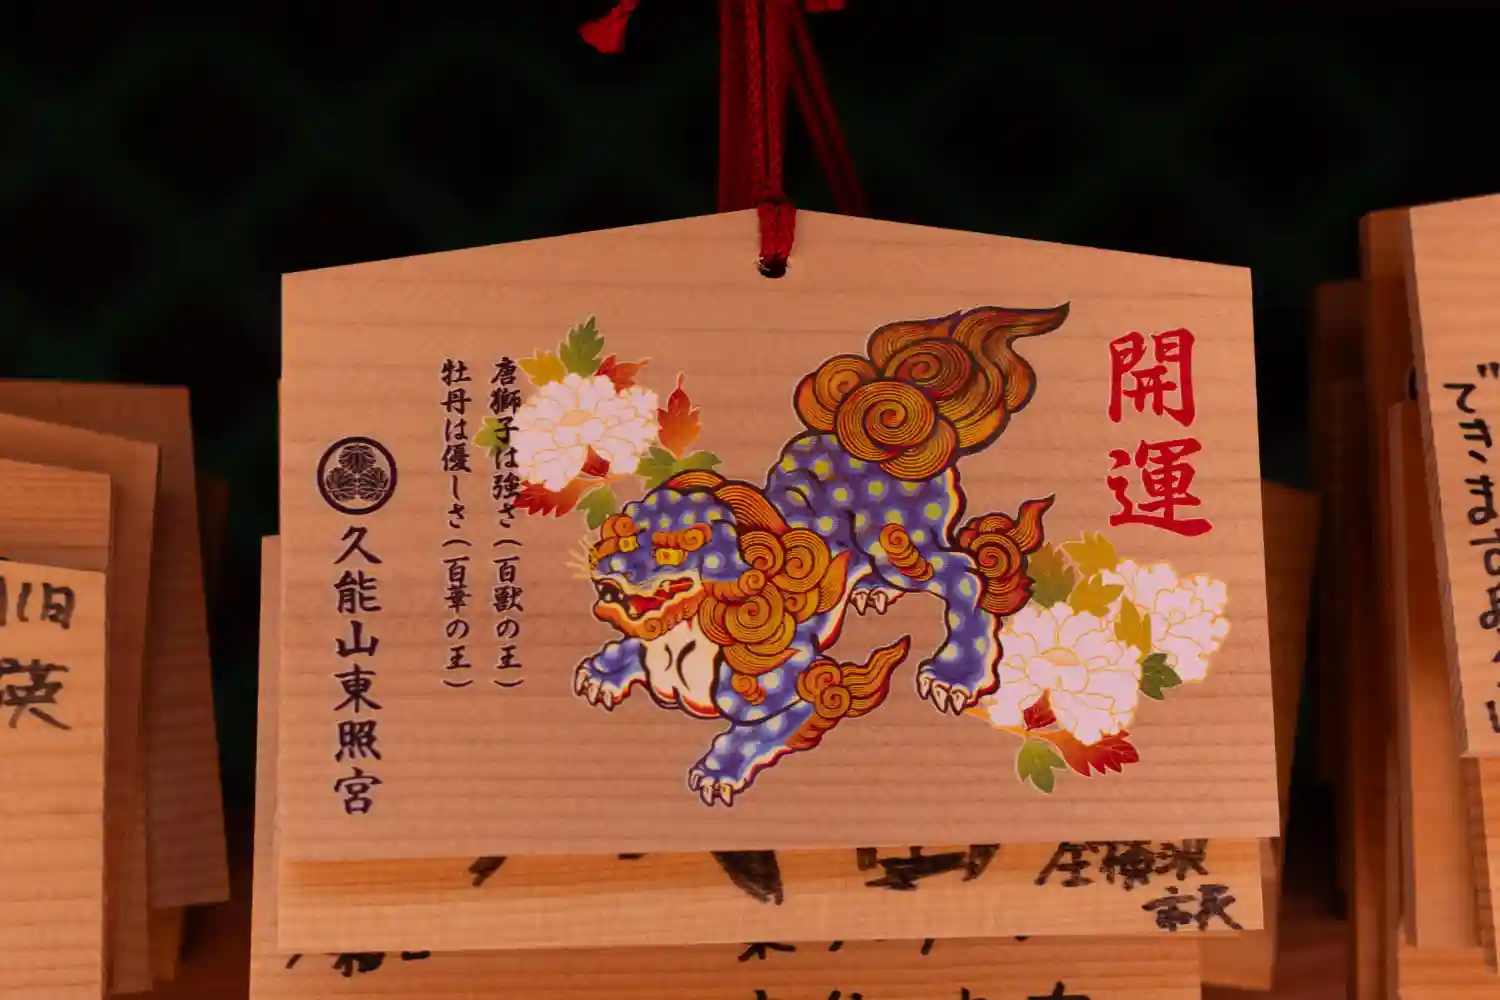 開運
唐獅子は強さ(百獣の王)
牡丹は優しさ(百華の王)
久能山東照宮
できま
英